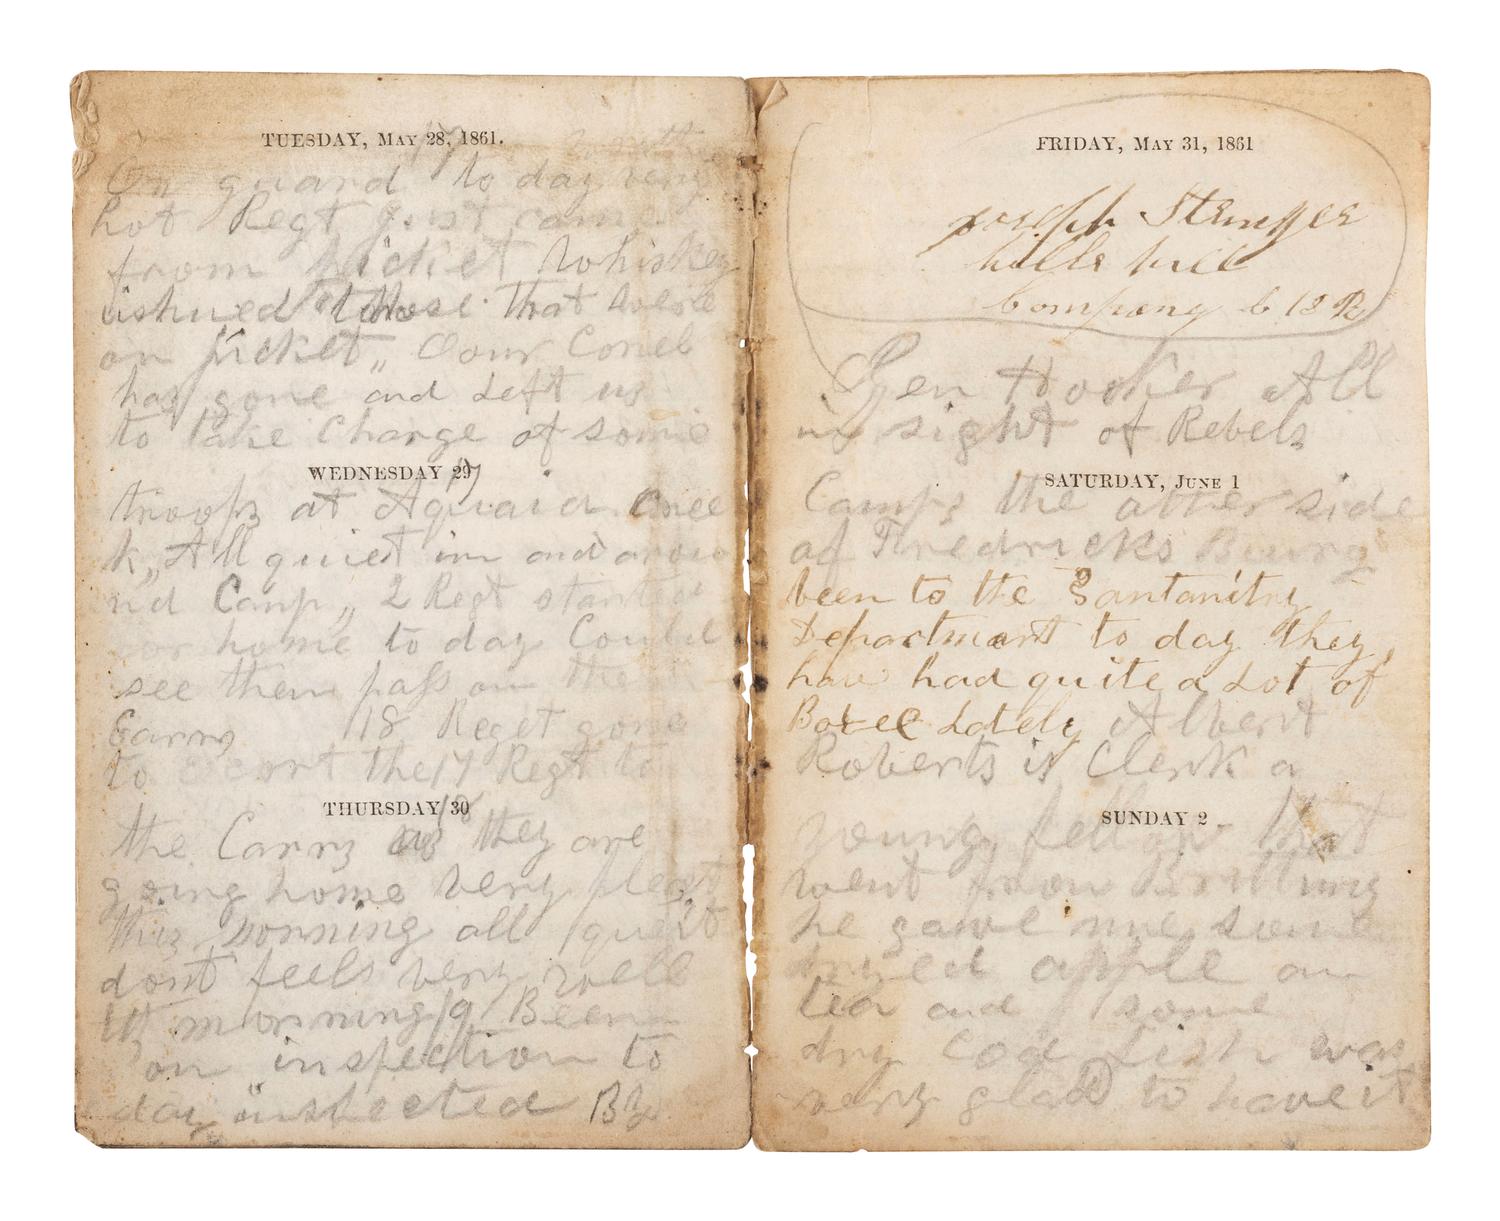 TUESDAY, MAY 28, 1861.
On guard to day very
hot Regt just came
from picket Whiskey
ishued to those that were
on picket,, Our Conel
has gone and Left us
to take Charge of some
WEDNESDAY 29
troops at Aquaid Cree
k,, All quiet inn and arou
nd Camp,, 2 Regt started
for home to day Could
see them pass on the
Carrs 18 Reget gone
to Escort the 17 Regt to
THURSDAY 30
the Carrs as they are
going home very plesent
this morning all quiet
dont feels very well
this morning 19 Been
on inspection to
day inspected By
FRIDAY, MAY 31, 1861
Joseph
hills hill
Company C 18 R
Gen Hooker All
in sight of Rebels
SATURDAY, JUNE 1
Camps the other side
of Fredricks Burg
been to the Santanitry
Department to day they
have had quite a Lot of
Boxee Lately Albert
Roberts is Clerk a
SUNDAY 2
young fellow that
went from
he gave me some
dryed apple an
tea and some
dry Cod fish was
very glad to have it